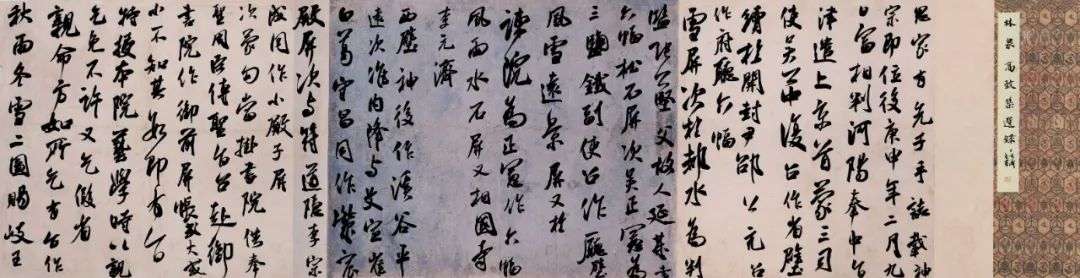 林泉高致集選錄
思家有先子手誌載神
宗即位後庚申年二月九
日富相判河陽奉中旨
津遣上京首蒙三司
使吳公中復召作省壁
續於開封尹邵公亢召
作府廳六幅
雪屏次於都水為判
監張公堅父故人延某畫
六幅松石屏次吳正憲為
三鹽鐵副使召作廳壁
風雪遠景屏又於
諫院為正憲作六幅
風雨水石屏又相國寺
李元濟
西壁神後作溪谷平
遠次准內降與艾宣崔
白葛守昌同作紫宸
殿屏次與符道隱李宗
成同作小殿子屏
次蒙勾當掛書院供奉
傳聖旨召赴御
書院作御前屏帳或大或
小不知其數即有旨
特授本院藝學時以親
老乞免不許又乞假省
親命方如所乞方旨作
秋雨冬雪二圖賜岐王